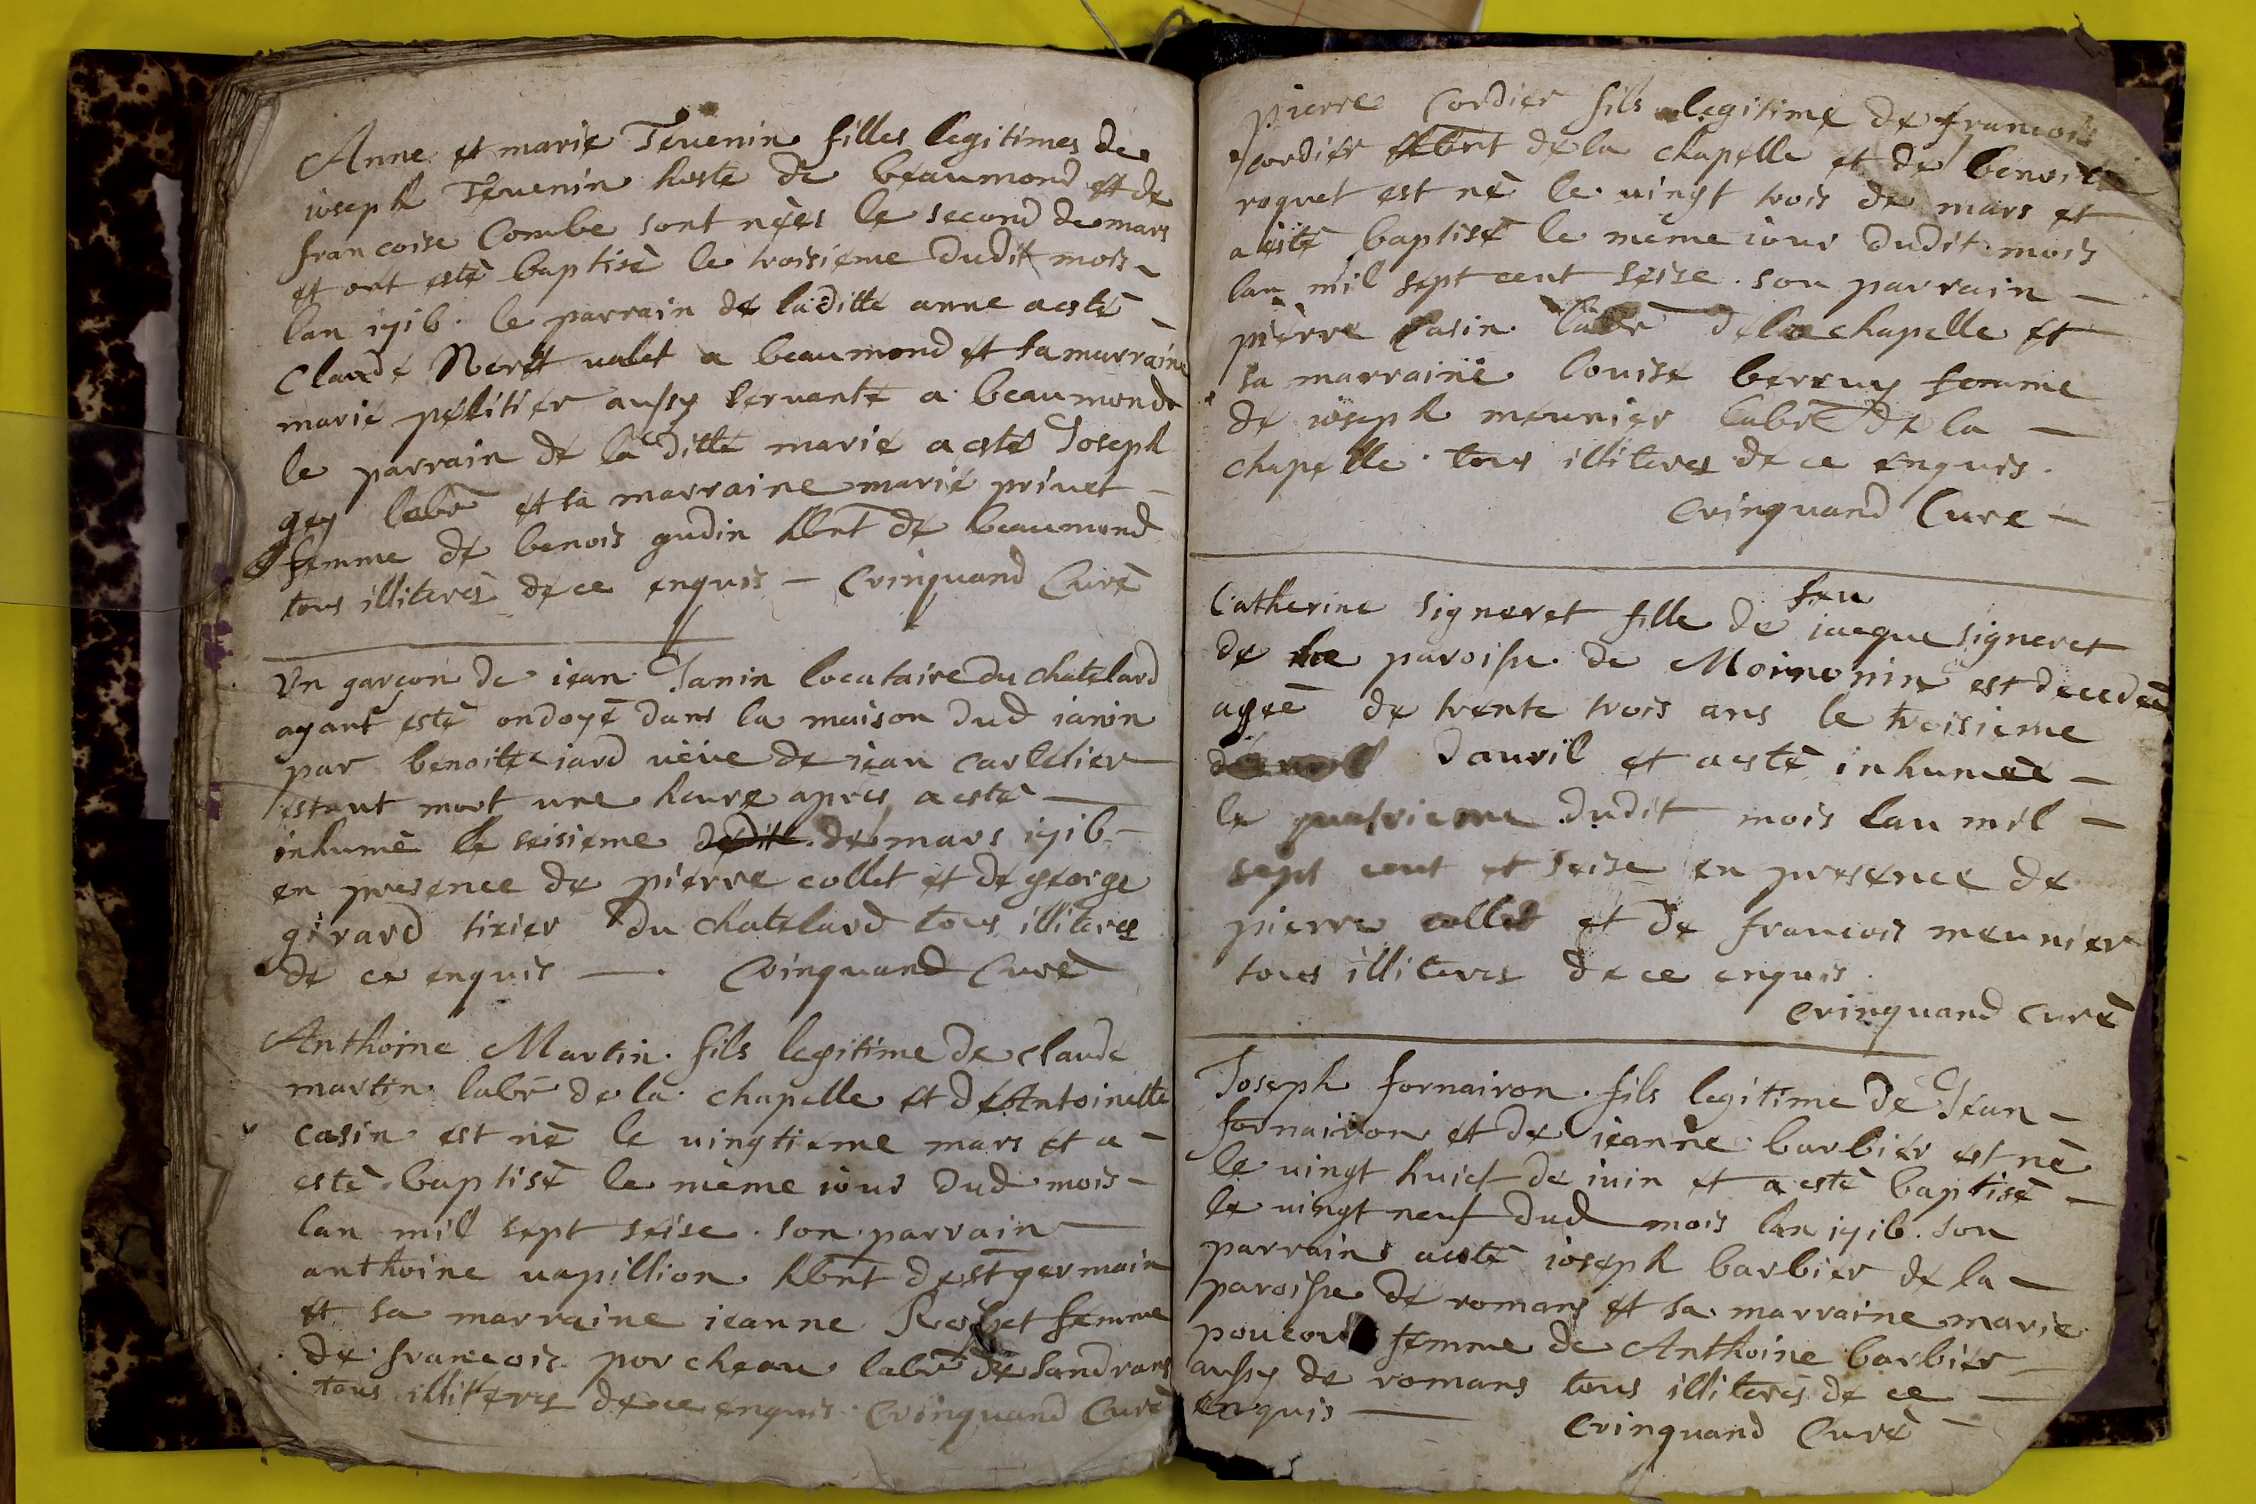 Anne et marie Tevenin filles legitimes de
ioseph Tevenin hoste de beaumond et de
francoise Combe sont nèes le second de mars
et ont estè baptisè le troisieme dudit mois
lan 1716. le parrain de la ditte anne a estè
Claude Neret valet a beaumond et sa marraine
marie pelitier aussy servante a beaumond
le parrain de la ditte marie a estè Joseph
gey labr et sa marraine marie privet
femme de benois gudin hbnt de beaumond
tous illiterès de ce enquis – Crinquand Curè
Un garçon de iean Janin locataire du chatelard
ayant estè ondoyè dans la maison dud ianin
par benoitte iard vève de iean cartelier
estant mort une heure apres a estè
inhumè le seisieme dedit de mars 1716
en presence de pierre collet et de george
girard tixier du chatelard tous illiteres
de ce enquis — . Crinquand Curè
Anthoine Martin fils legitime de claude
martin labr de la chapelle et de Antoinette
casin est nè le vingtieme mars et a
estè baptisè le mème iour dud mois
lan mil sept seise . son parrain
anthoine vapillion hbnt de st germain
et sa marraine ieanne femme
de francois porcheau labr de sandrans
tous illiteres de ce enquis Crinquand Curè
pierre Cordier fils legitime de francois
cordier hbnt de la chapelle et de benoite
roquet est nè le vingt trois de mars et
a estè baptisè le mème iour dudit mois
lan mil sept cent seise . son parrain
pierre casin labr de la chapelle et
sa marraine louise berruy femme
de ioseph meunier labr de la
chapelle . tous illiteres de ce enquis .
Crinquand Cure
feu
Catherine signeret fille de iacque signeret
de la paroisse de est decedeè
ageè de trente trois ans le troisieme
d'avril et a estè inhumeè
le quatrieme dudit mois lan mil
sept cent et seise en presence de
pierre collet et de francois meunier
tous illiteres de ce enquis .
Crinquand curè
Joseph fornairon fils legitime de Jean
fornairon et de ieanne barbier est nè
le vingt huict de iuin et a estè baptisè
le vingt neuf dud mois lan 1716. son
parrain a estè ioseph barbier de la
paroisse de romans et sa marraine marie
femme de Anthoine barbier
aussy de romans tous illiterès de ce
enquis — Crinquand Curè